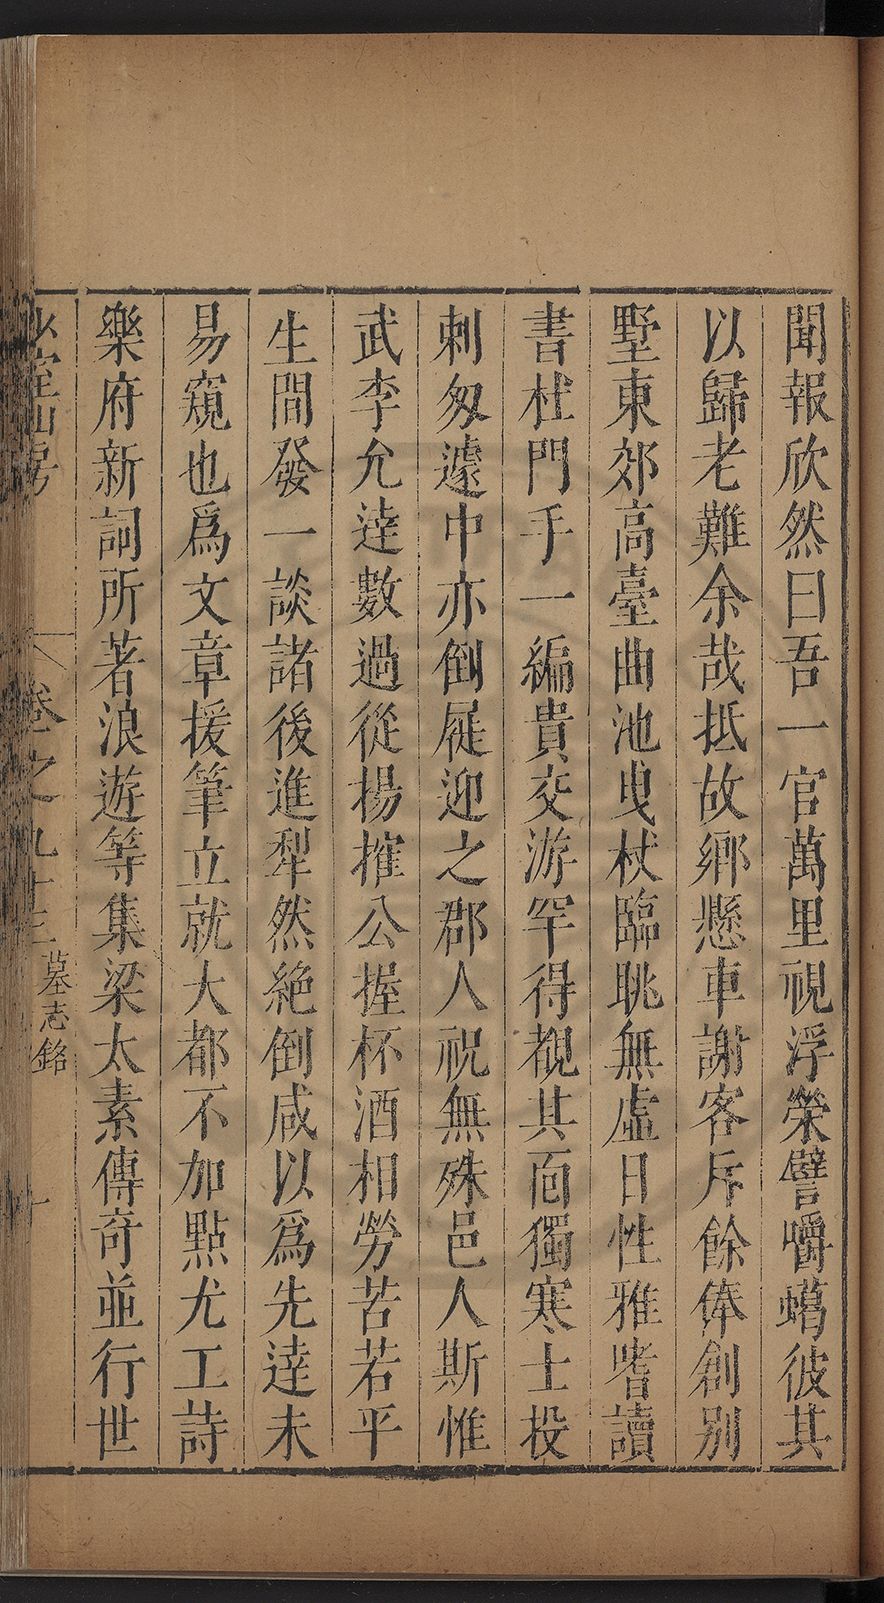 聞報欣然曰吾一官萬里視浮榮譬嚼蠟彼其
以歸老難余哉抵故鄉懸車謝客斥餘俸創別
墅東郊高臺曲池曳杖臨眺無虛日性雅嗜讀
書杜門手一編貴交游罕得覩其面獨寒士投
刺匆遽中亦倒屣迎之郡人祝無殊邑人斯惟
武李允達數過從揚搉公握杯酒相勞苦若平
生間發一談諸後進犁然絶倒咸以爲先達未
易窺也爲文章援筆立就大都不加點尤工詩
樂府新詞所著浪遊等集梁太素傳奇並行世
少室山房
卷之九十三
墓志銘
十